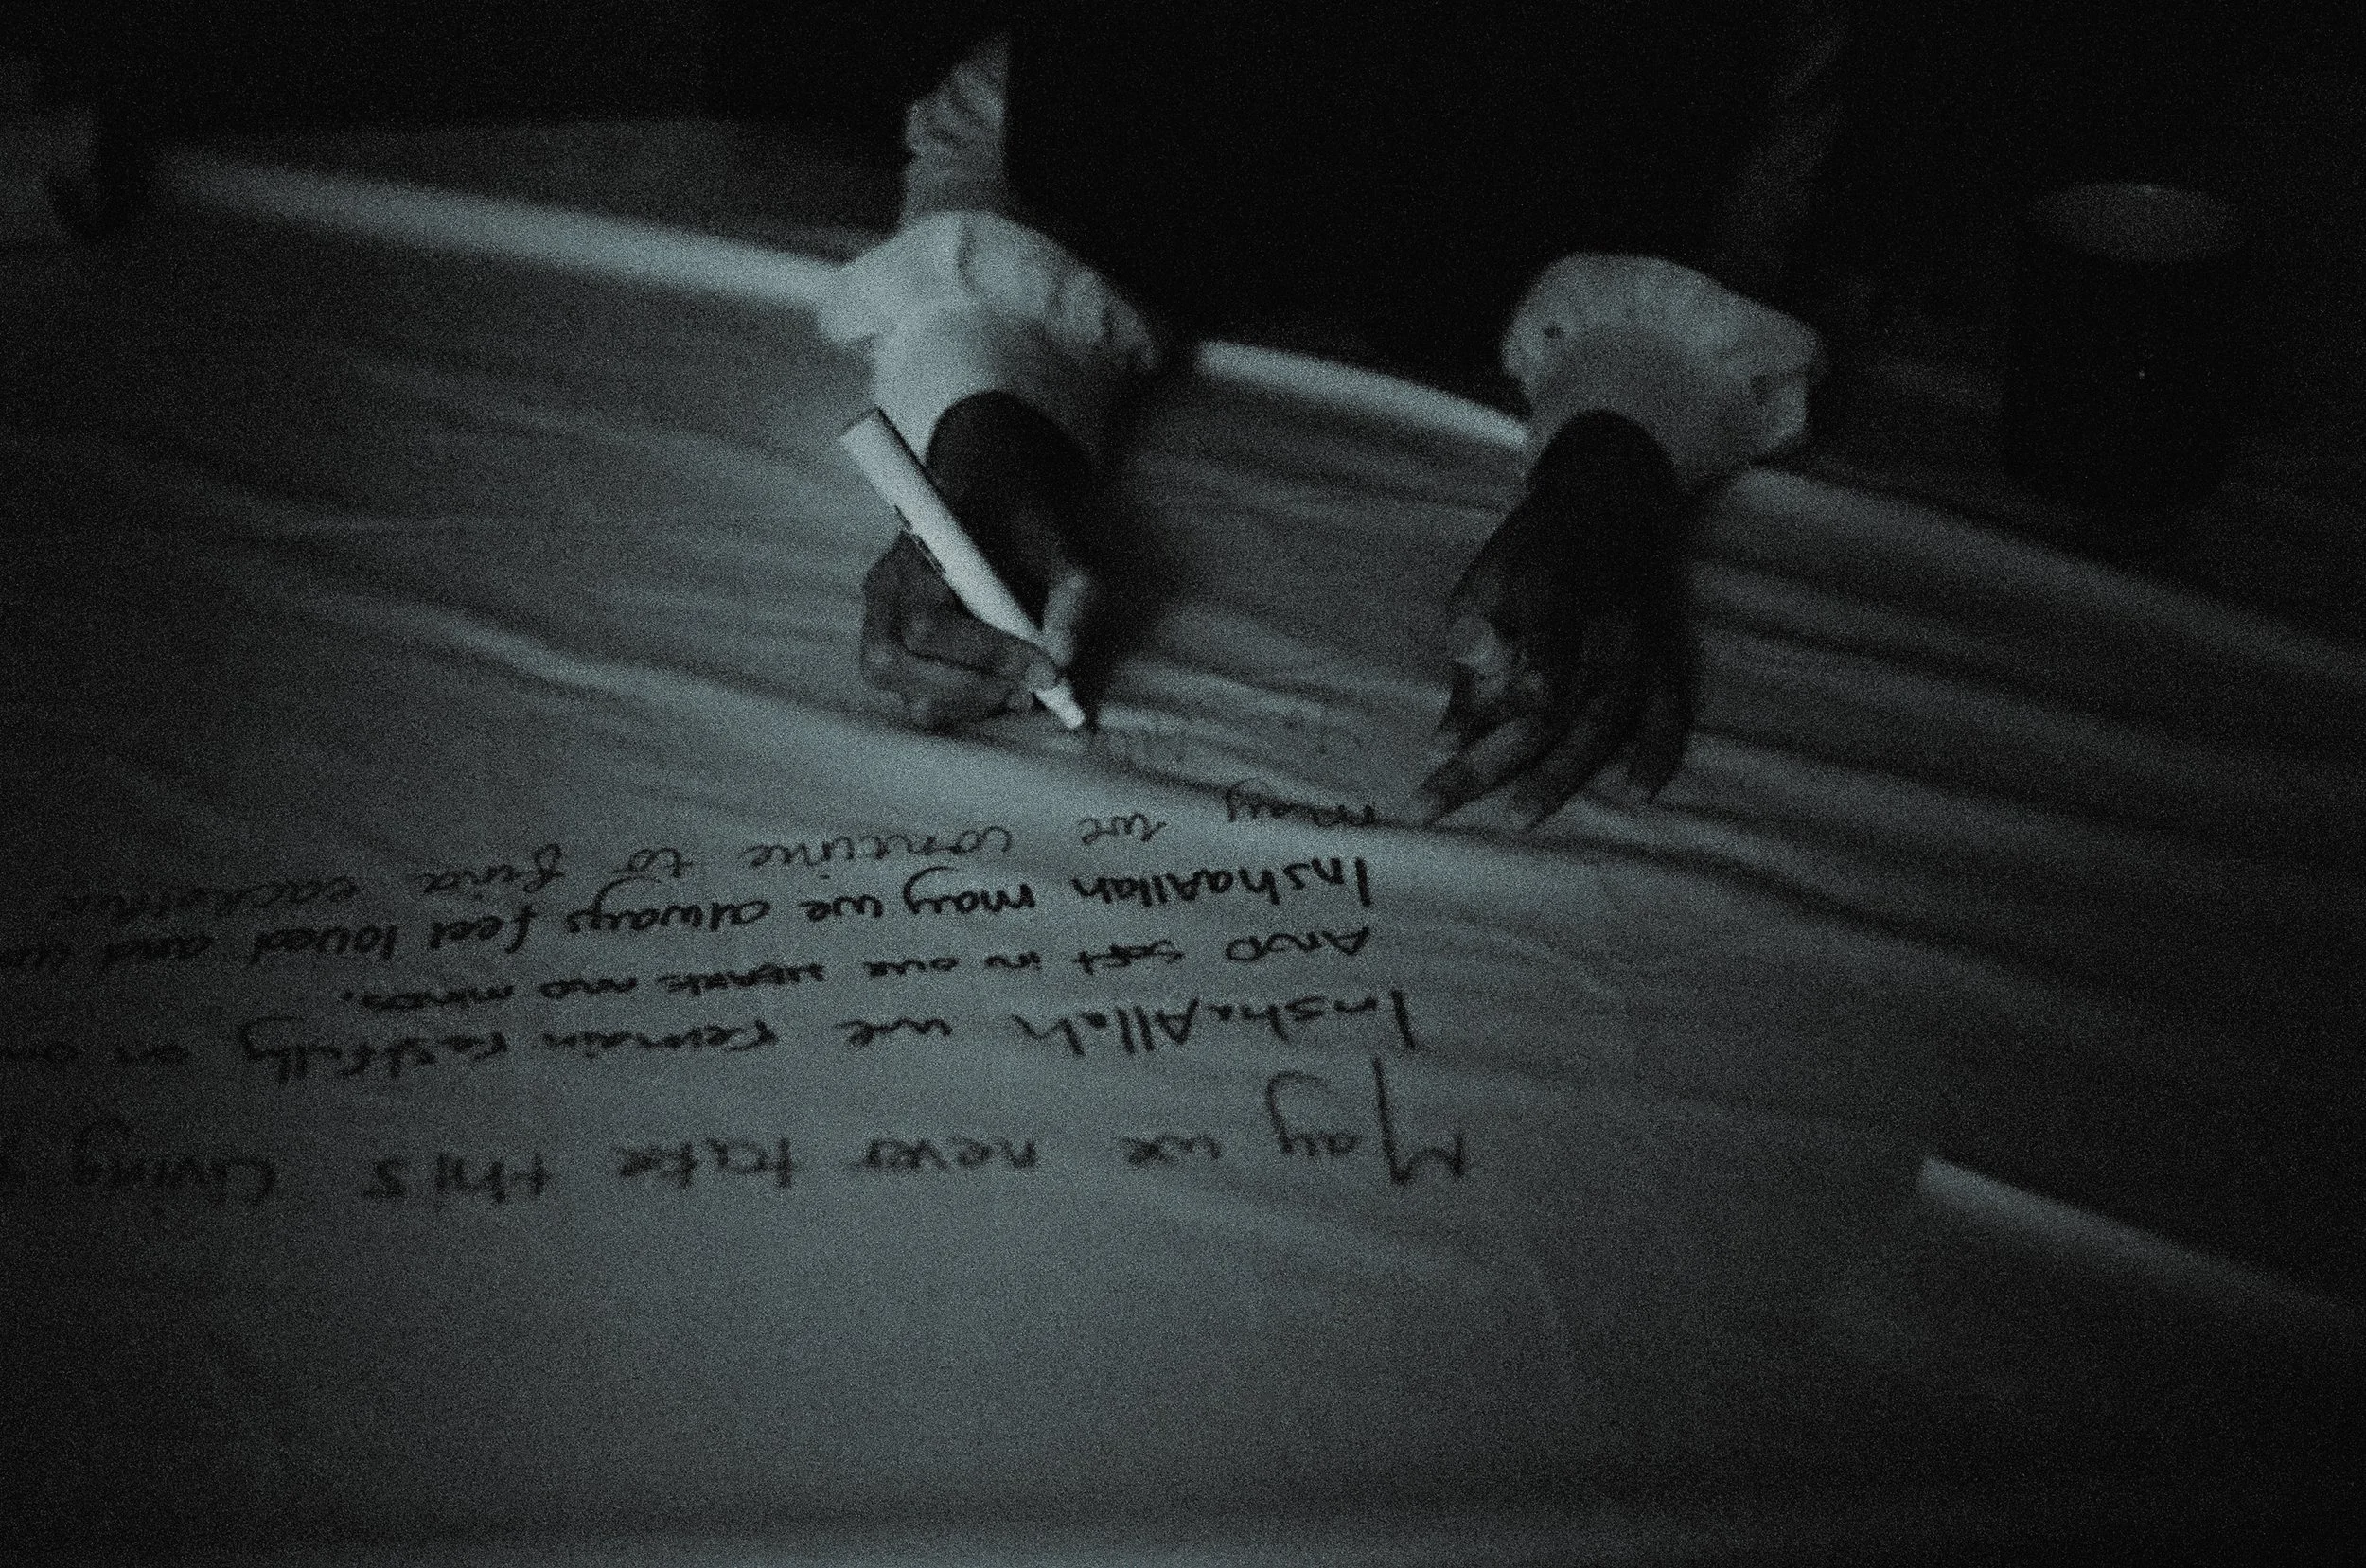 May we never take this living
InshaAllah we remain restfully in our
AND soft in our hearts AND minds.
InshaAllah may we always feel loved and
May we continue to find eachother